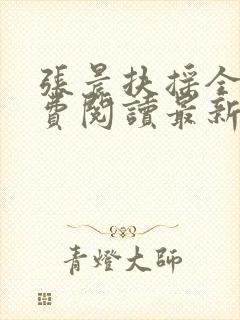 張晨扶搖全
費閱讀最新
青燈大師